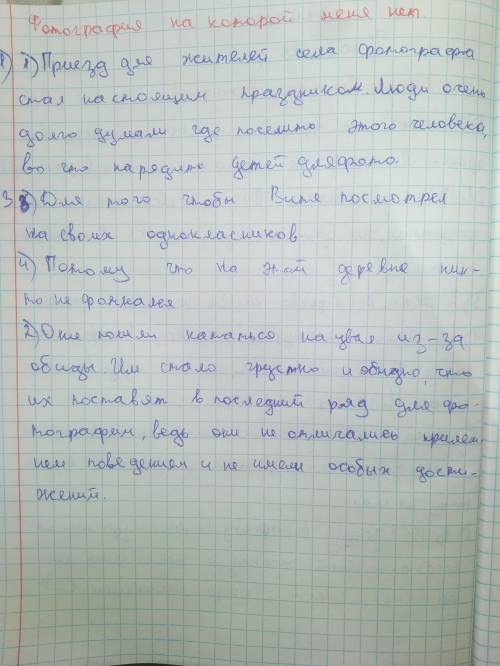 Фотография на которой меня нет.
1) 1) Приезд для жителей села фотографа
стал настоящим праздником. Люди очень
долго думали где поселить этого человека,
во что нарядить детей для фото.
3 3) Для того чтобы Витя посмотрел
на своих однокласников
4) Потому что на этой деревне ник-
то не фоткался
2) Они пошли кататься на увал из-за
обиды. Им стало грустно и обидно, что
их поставят в последний ряд для фо-
тографии, ведь они не отличались прилеж-
ным поведением и не имели особых дости-
жений.